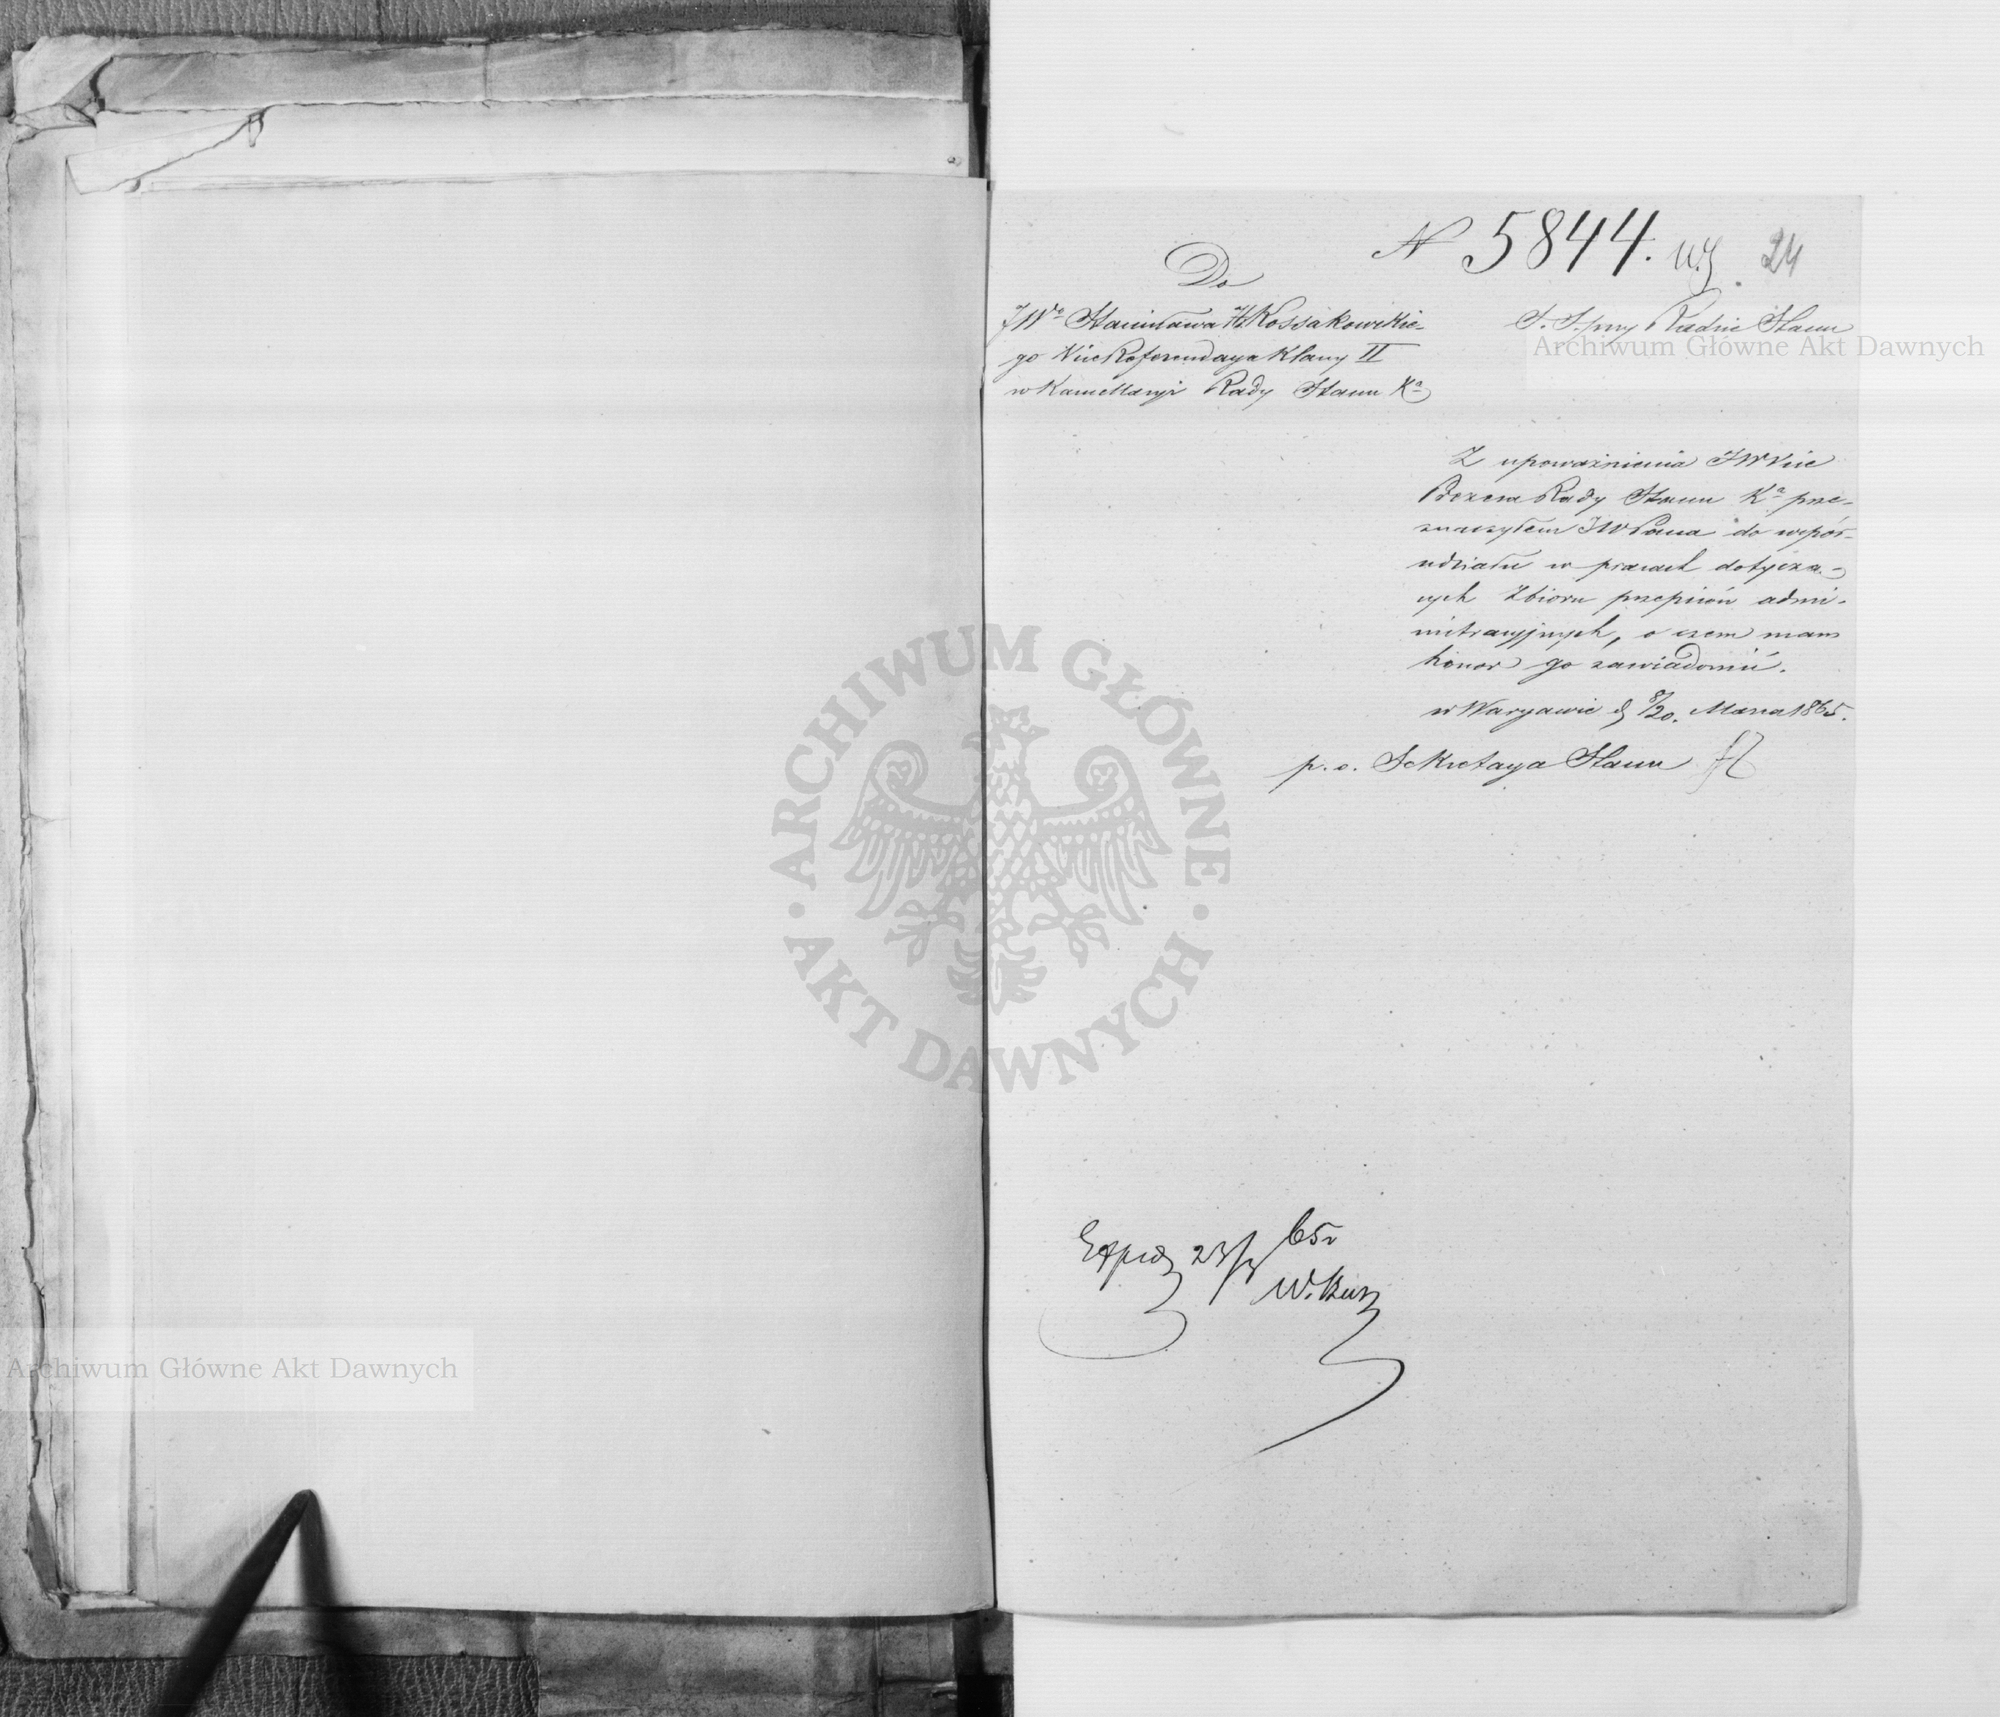 N 5844. 24
Do
JWo Stanisława Hr Kossakowskie-
go Vice Referendarza Klassy II
w Kancellaryi Rady Stanu Ka
S. S. przy Radzie Stanu
Z upoważnienia JW Vice
Prezesa Rady Stanu Ka prze-
znaczyłem JW Pana do wspó-
udziału w pracach dotyczą-
cych Zbioru przepisów admi-
nistracyjnych, o czem mam
honor go zawiadomić.
w Warszawie d 8/20. Marca 1865.
p. o. Sekretarza Stanu
Exped 23/3 65r
Archiwum Główne Akt Dawnych
ARCHIWUM GŁÓWNE
AKT DAWNYCH
Archiwum Główne Akt Dawnych